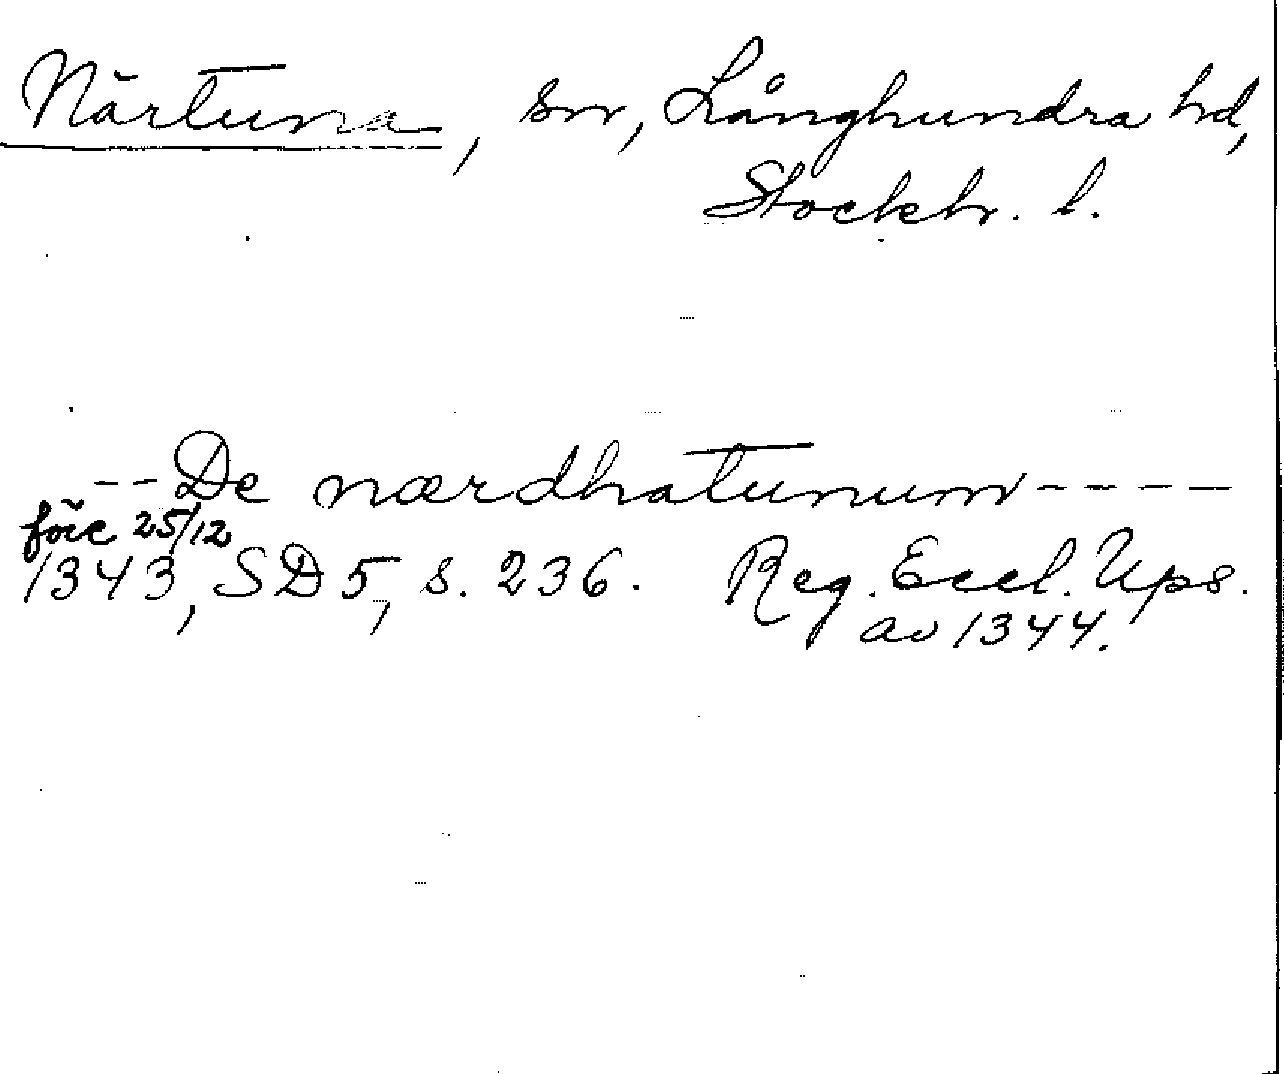 Närtuna, sn, Långhundra hd,
Stockh. l.
--De nærdhatunum----
före 25/12
1343, SD 5, s. 236. Reg. Eccl. Ups.
av 1344.